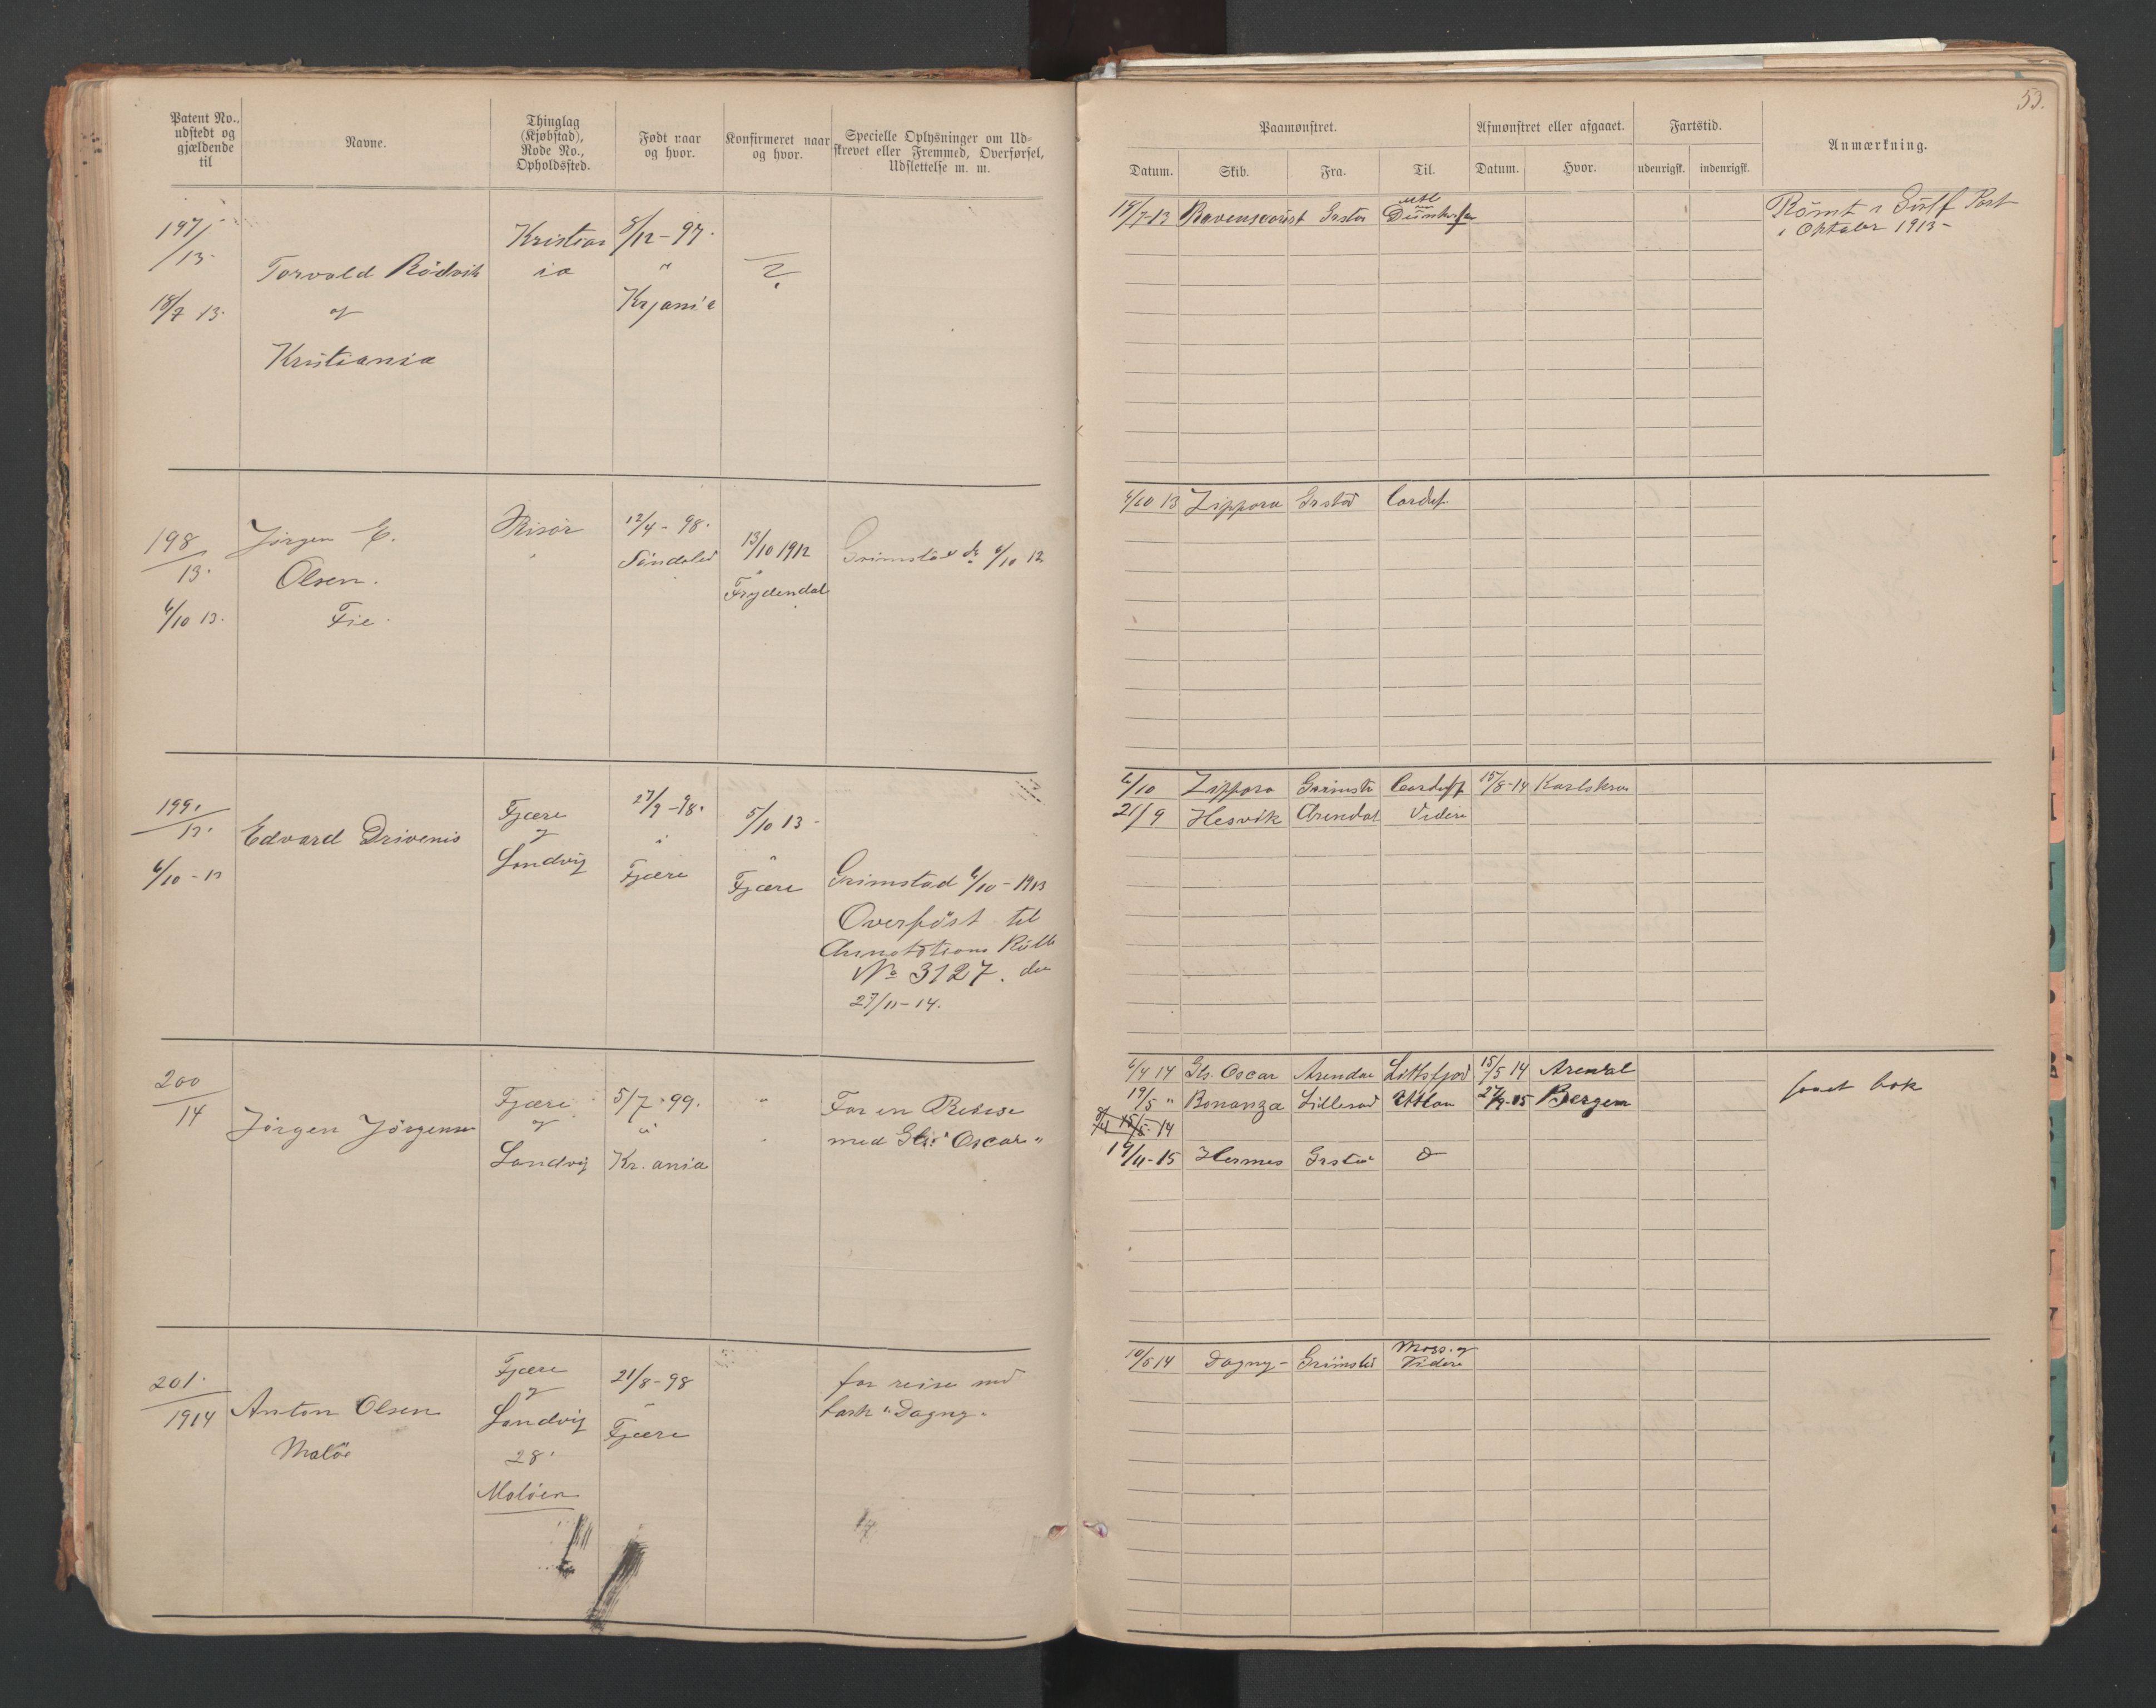 53.
Patent No., udstedt og gjældende til
Navne.
Thinglag (Kjøbstad), Rode No., Opholdssted.
Født naar og hvor.
Konfirmeret naar og hvor.
Specielle Oplysninger om Udskrevet eller Fremmed, Overførsel, Udslettelse m. m.
Paamønstret.
Afmønstret eller afgaaet.
Fartstid.
Anmærkning.
Datum.
Skib.
Fra.
Til.
Datum.
Hvor.
udenrigsk.
indenrigsk.
197/
/13.
18/7 13.
Torvald Rödvik
af
Kristiania
Kristian
ia
8/12 - 97.
"
Krjania
?
19/7-13 Ravenscourt Grstad
Römt i Gulf Port
i Oktober 1913 -
198
/13.
6/10 13.
Jörgen E.
Olsen.
Fie.
Risör
12/4 - 98.
Söndeled
13/10 1912
"
Frydendal
Grimstad d. 6/10 13
6/10 13 Zippora Grstad Cardiff.
199.
/13.
6/10 - 13
Edvard Drivenis
Fjære
og
Landvig
27/9 - 98.
"
Fjære
5/10 13 -
"
Fjære
Grimstad 6/10 - 1913
Overföst til
Annotations Rulle
No 3127. den
27/11 - 14.
6/10 Zippora Grimst. Cardiff 15/8-14 Karlskrona
21/9 Hesvik Arendal Videre
200
/14
Jörgen Jörgensen
Fjære
og
Landvig
5/7 - 99.
"
Kr. ania
"
"
For en Reise
med Gls. "Oscar"
6/4 14 Gls. Oscar Arendal 15/5 14 Arendal
19/5 " Bonanza Lillesand Atttan 27/9-15 Bergen
15/5-14
19/11-15 Hermes Grstad
faaet bok
201.
/1914
Anton Olsen
Malöe
Fjære
og
Landvig
28.
Malöen
21/8 - 98
"
Fjære
for reise med
bark "Dagny"
10/5 14 Dagny - Grimstad Moss. og
Videre